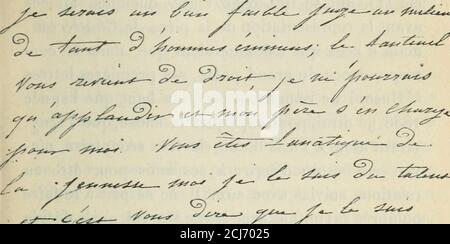 je serais un bien faible juge au milieu
de tant d'hommes éminens; le fauteuil
vous revient de droit, je ne pourrais
qu'applaudir et mon père s'en charge
pour moi. Vous êtes fanatique de
la jeunesse moi je le suis du talent
et c'est vous dire que je le suis
alamy
2CJ7025